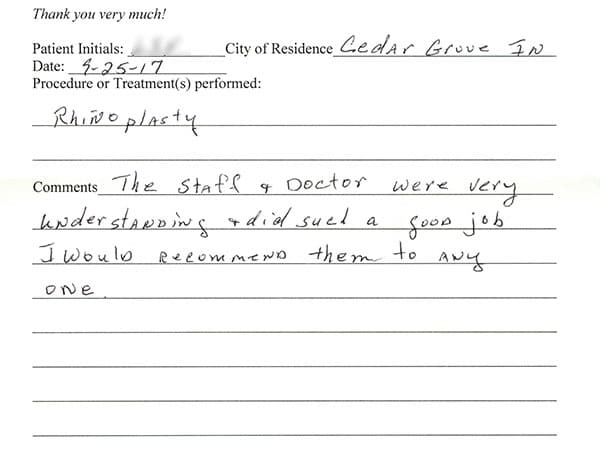 Thank you very much!
Patient Initials: City of Residence Cedar Grove IN
Date: 9-25-17
Procedure or Treatment(s) performed:
Rhinoplasty
Comments The Staff & Doctor were very
understanding & did such a good job
I would recommend them to any
one